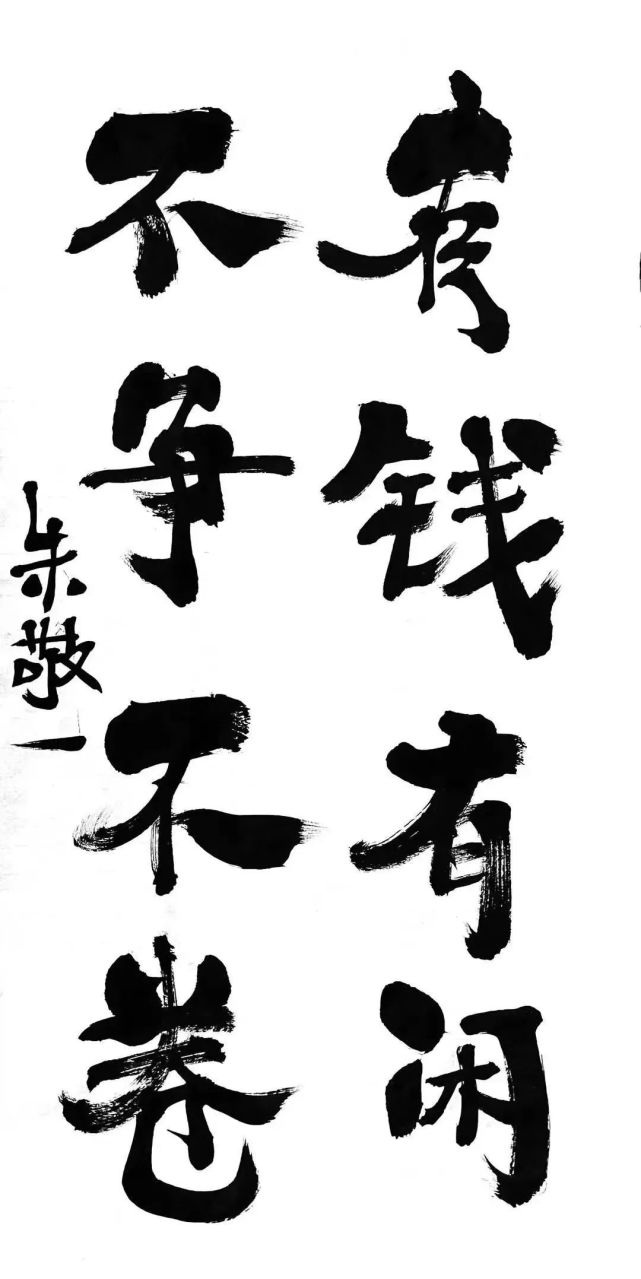 有钱有闲
不争不卷
朱敬一